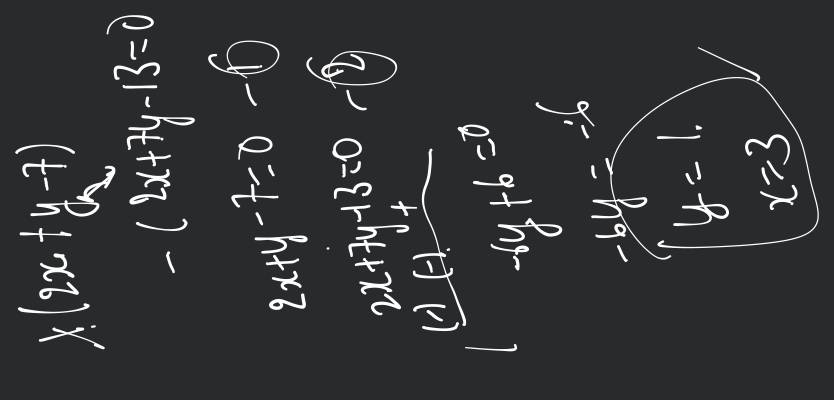 (2x + y - 7)
- (2x + 7y - 13 = 0)
2x + y - 7 = 0 - 1
2x + 7y - 13 = 0 - 2
(-) (-) +
-6y + 6 = 0
y = 1
x = 3